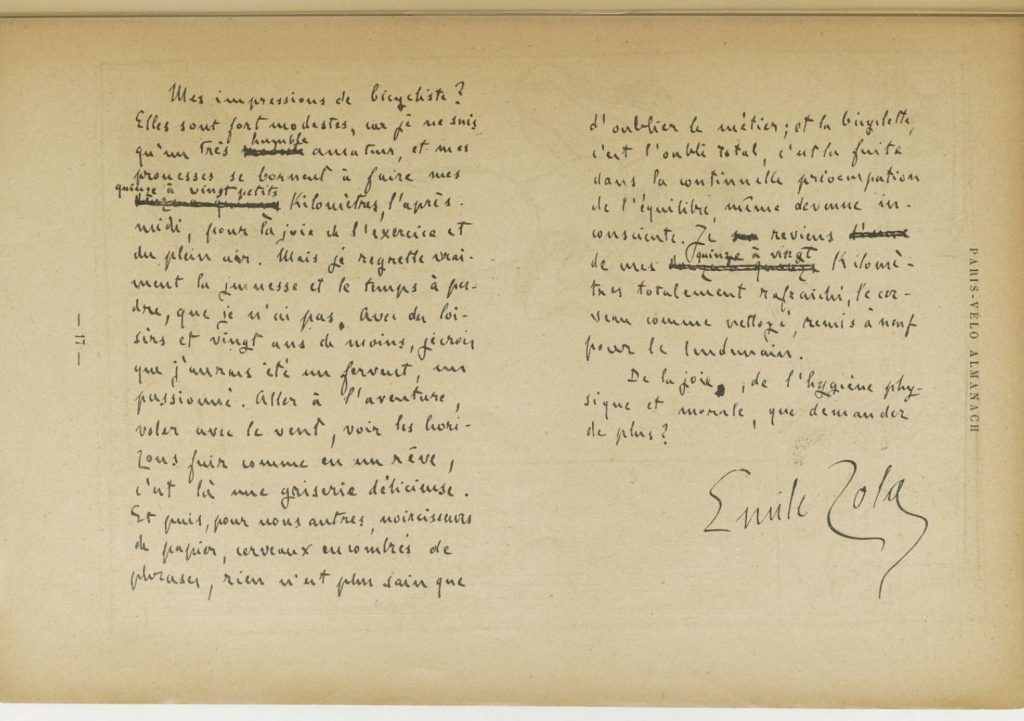 Mes impressions de bicycliste?
Elles sont fort modestes, car je ne suis
humble
qu'un très amateur, et mes
prouesses se bornent à faire mes
quinze à vingt petits
kilomètres, l'après-
midi, pour la joie de l'exercice et
du plein air. Mais je regrette vrai-
ment la jeunesse et le temps à per-
dre, que je n'ai pas. Avec des loi-
sirs et vingt ans de moins, je crois
que j'aurais été un fervent, un
passionné. Aller à l'aventure,
voler avec le vent, voir les hori-
zons fuir comme en un rêve,
c'est là une griserie délicieuse.
Et puis, pour nous autres, noircisseurs
de papier, cerveaux encombrés de
phrases, rien n'est plus sain que
— 17 —
d'oublier le métier; et la bicyclette,
c'est l'oubli total, c'est la fuite
dans la continuelle préoccupation
de l'équilibre, même devenue in-
consciente. Je reviens
quinze à vingt
de mes kilomè-
tres totalement rafraîchi, le cer-
veau comme nettoyé, remis à neuf
pour le lendemain.
De la joie, de l'hygiène phy-
sique et morale, que demandez
de plus?
Emile Zola
PARIS-VÉLO ALMANACH